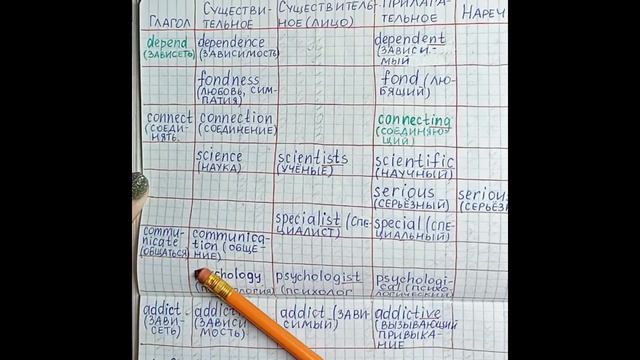 ГЛАГОЛ
СУЩЕСТВИ-
ТЕЛЬНОЕ
СУЩЕСТВИТЕЛЬ-
НОЕ (ЛИЦО)
ПРИЛАГА-
ТЕЛЬНОЕ
НАРЕЧ
depend
(ЗАВИСЕТЬ)
dependence
(ЗАВИСИМОСТЬ)
dependent
(ЗАВИСИ-
МЫЙ)
fondness
(ЛЮБОВЬ, СИМ-
ПАТИЯ)
fond (ЛЮ-
БЯЩИЙ)
connect
(СОЕДИ-
НЯТЬ.
connection
(СОЕДИНЕНИЕ)
connecting
(СОЕДИНЯЮ-
ЩИЙ)
science
(НАУКА)
scientists
(УЧЁНЫЕ)
scientific
(НАУЧНЫЙ)
serious
(СЕРЬЁЗНЫЙ)
seriou
(СЕРЬЁЗ
specialist (СПЕ-
ЦИАЛИСТ)
special (СПЕ-
ЦИАЛЬНЫЙ)
commu-
nicate
(ОБЩАТЬСЯ)
communica-
tion (ОБЩЕ-
НИЕ)
chology
psychologist
(ПСИХОЛОГ
psychologi-
cal (ПСИХО-
ЛОГИЧЕСКИЙ)
addict
(ЗАВИ-
СЕТЬ)
addict
(ЗАВИСИ
МОСТЬ)
addict (ЗАВИ-
СИМЫЙ)
addictive
(ВЫЗЫВАЮЩИЙ
ПРИВЫКА-
НИЕ